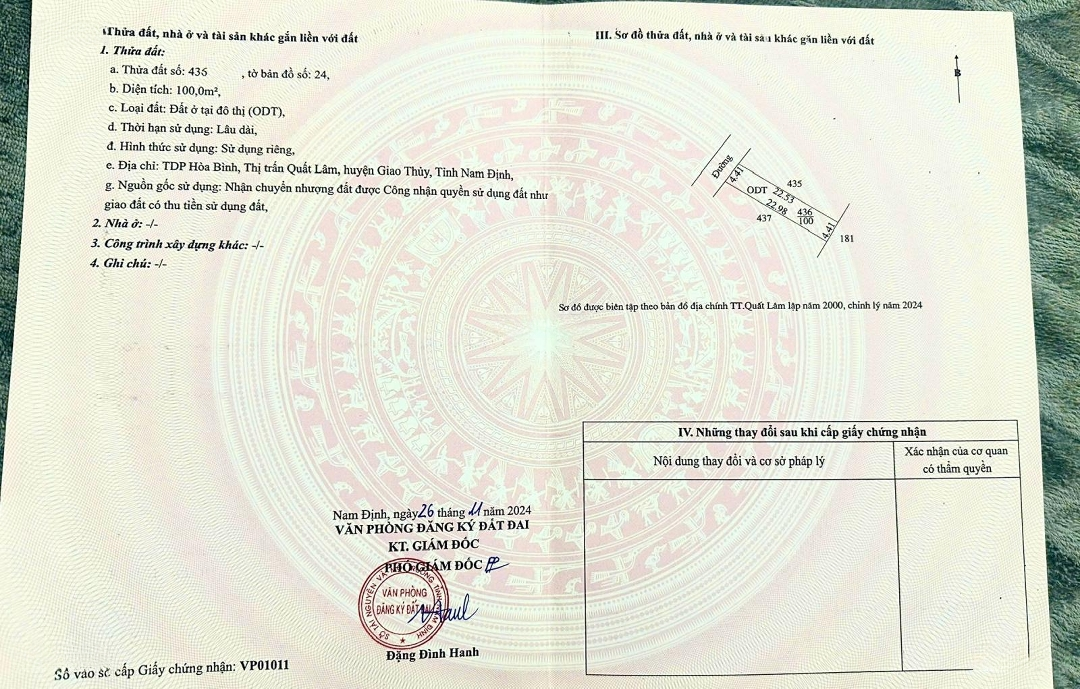 Thửa đất, nhà ở và tài sản khác gắn liền với đất
1. Thửa đất:
a. Thửa đất số: 436 , tờ bản đồ số: 24,
b. Diện tích: 100,0m²,
c. Loại đất: Đất ở tại đô thị (ODT),
d. Thời hạn sử dụng: Lâu dài,
đ. Hình thức sử dụng: Sử dụng riêng,
e. Địa chỉ: TDP Hòa Bình, Thị trấn Quất Lâm, huyện Giao Thủy, Tỉnh Nam Định,
g. Nguồn gốc sử dụng: Nhận chuyển nhượng đất được Công nhận quyền sử dụng đất như
giao đất có thu tiền sử dụng đất,
2. Nhà ở: -/-
3. Công trình xây dựng khác: -/-
4. Ghi chú: -/-
Nam Định, ngày 26 tháng 11 năm 2024
VĂN PHÒNG ĐĂNG KÝ ĐẤT ĐAI
KT. GIÁM ĐỐC
PHÓ GIÁM ĐỐC
VĂN PHÒNG
ĐĂNG KÝ ĐẤT ĐAI
Đặng Đình Hanh
Số vào sổ cấp Giấy chứng nhận: VP01011
III. Sơ đồ thửa đất, nhà ở và tài sản khác gắn liền với đất
B
Đường
4.41
435
ODT
22.53
22.98
436
100
437
4.41
181
Sơ đồ được biên tập theo bản đồ địa chính TT.Quất Lâm lập năm 2000, chỉnh lý năm 2024
IV. Những thay đổi sau khi cấp giấy chứng nhận
Nội dung thay đổi và cơ sở pháp lý
Xác nhận của cơ quan
có thẩm quyền